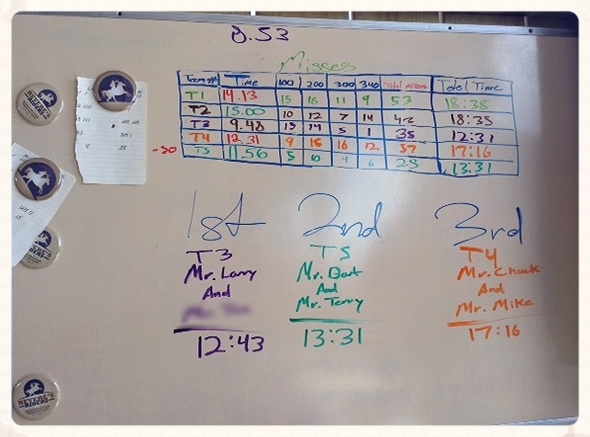 Misses
Team# Time 100 200 300 340 Total misses Total Time
T1 14.13 15 18 11 9 53 18:38
T2 15.00 10 12 7 14 43 18:35
T3 9.48 15 14 5 1 35 12:31
T4 12.31 9 16 12 57 17:16
-30
T5 11.56 5 10 4 6 25 13:31
1st 2nd 3rd
T3
Mr. Larry
And
12:43
T5
And
Mr. Terry
13:31
T4
Mr. Chuck
And
Mr. Mike
17:16